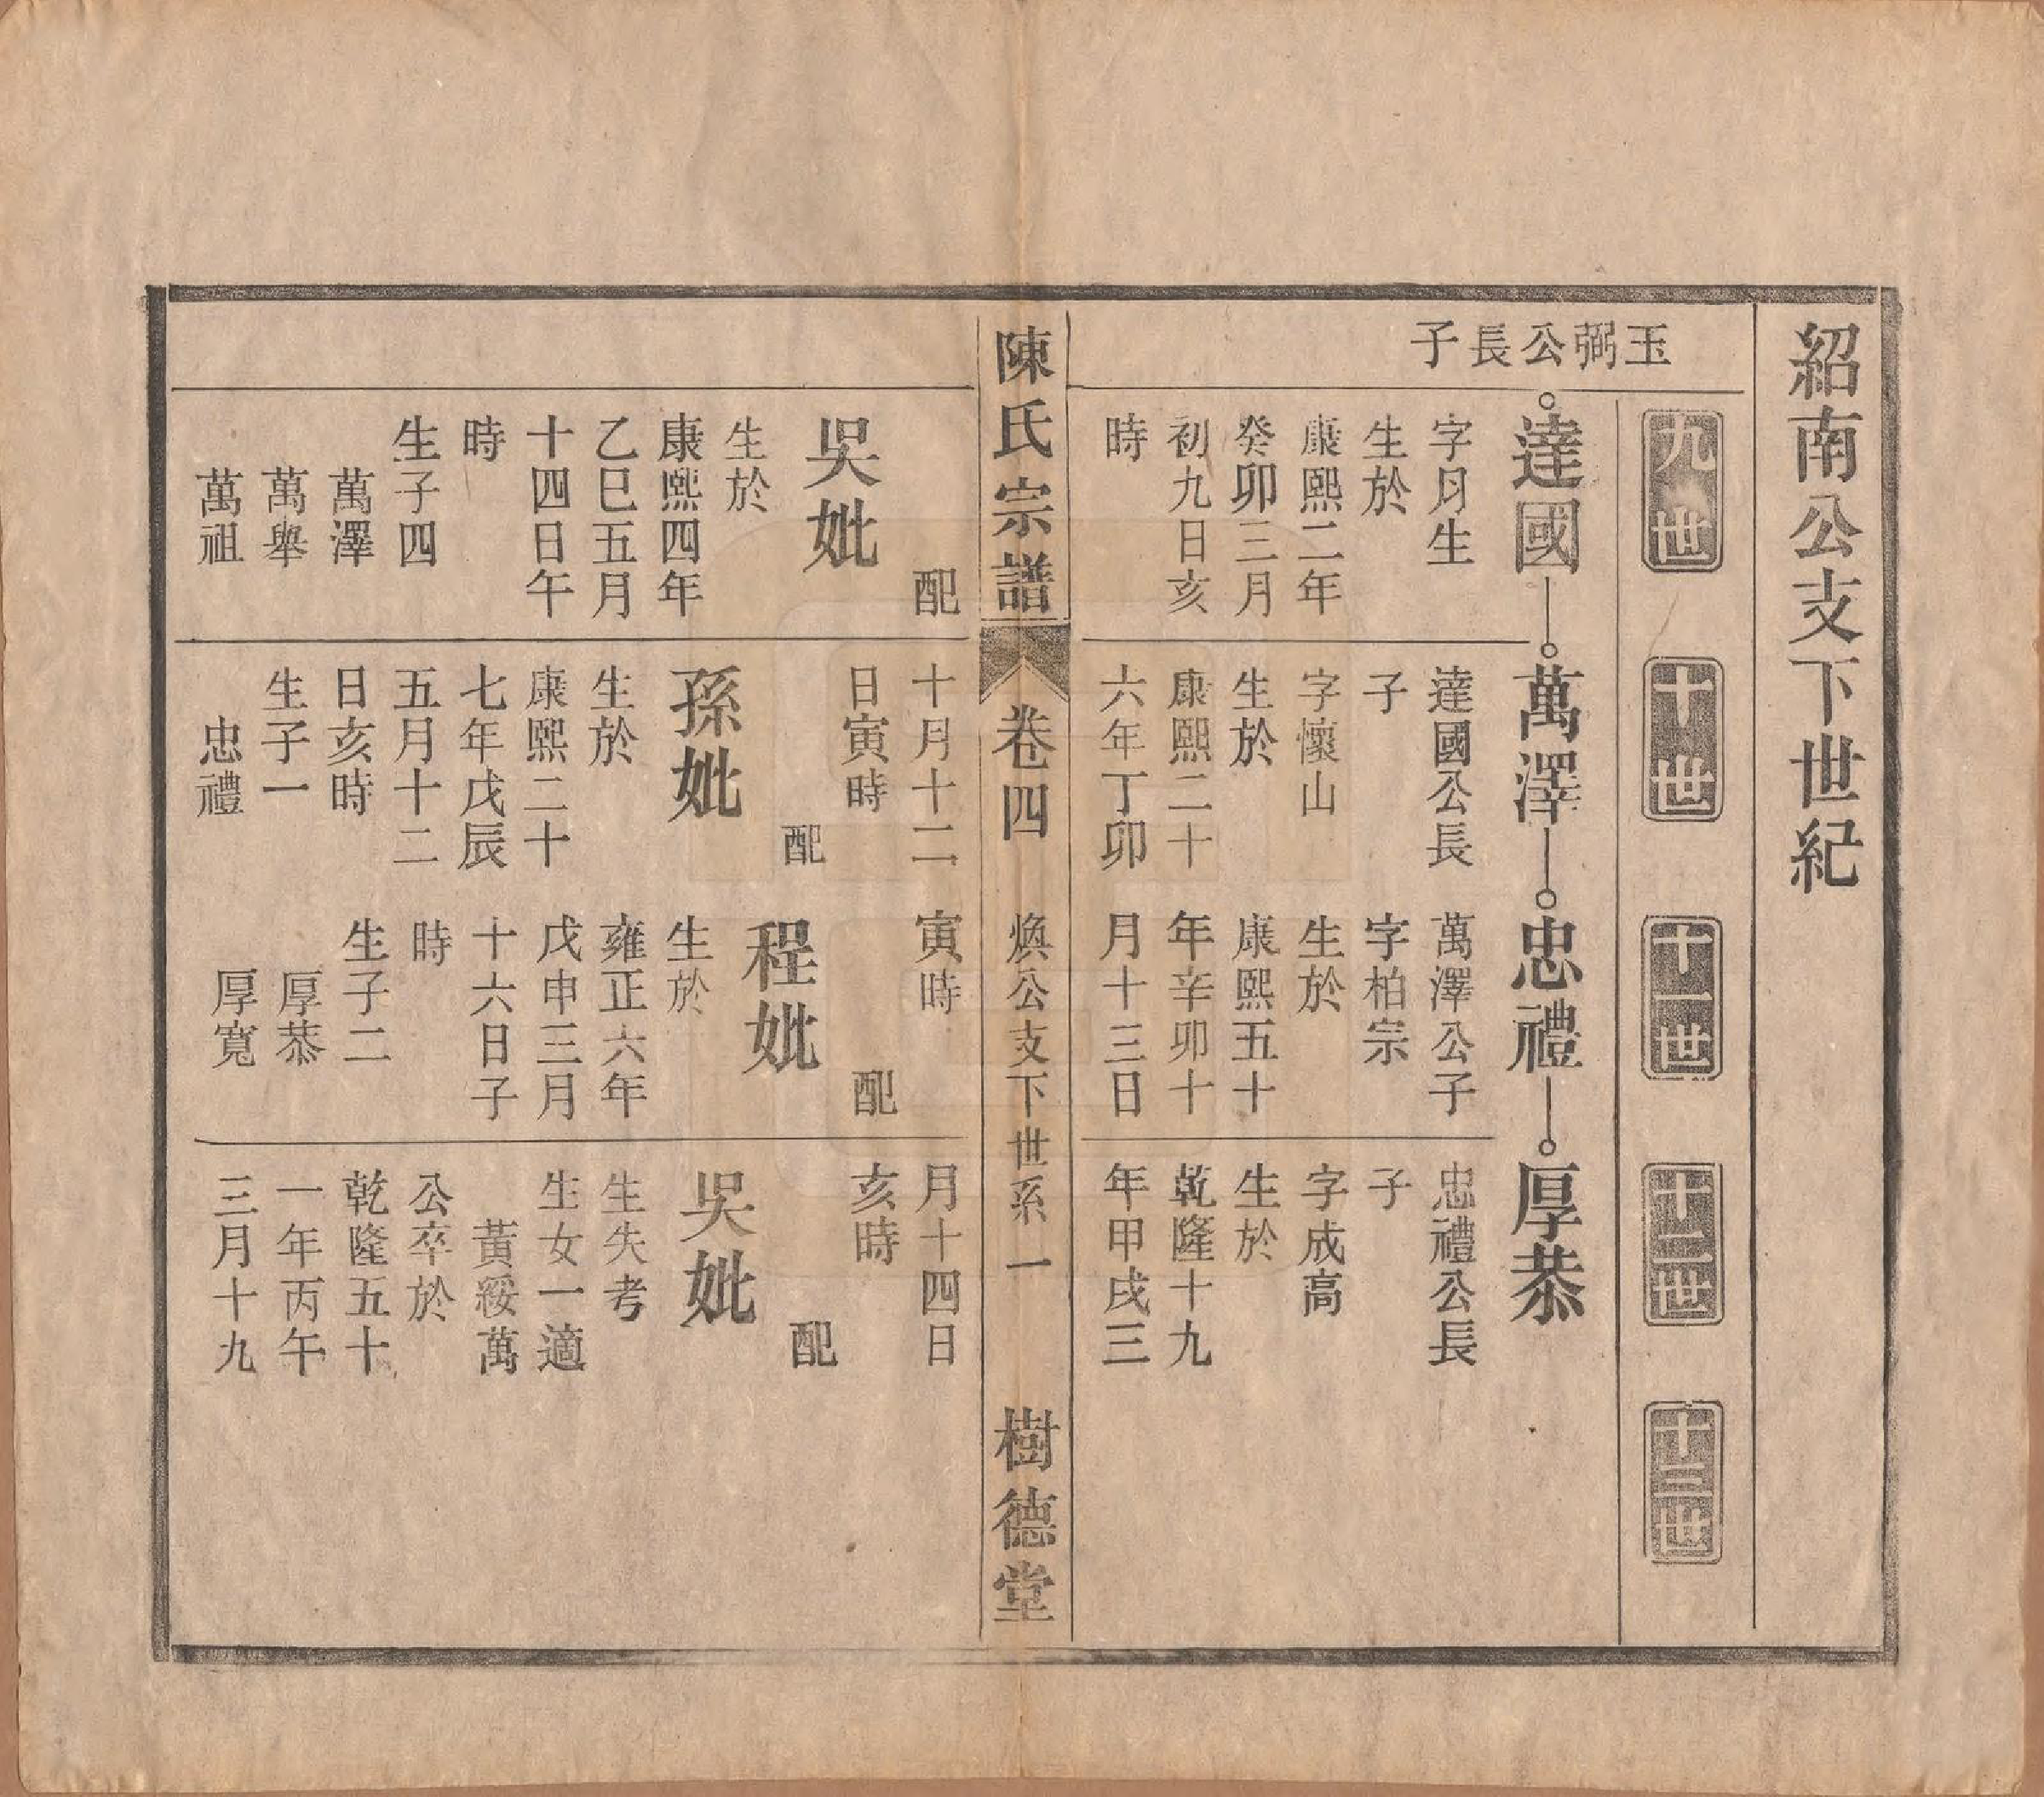 紹南公支下世紀
九世
十世
十一世
十二世
十三世
玉弼公長子
達國
字月生
生於
康熙二年
癸卯三月
初九日亥
時
萬澤
達國公長
子
字懷山
生於
康熙二十
六年丁卯
忠禮
萬澤公子
字柏宗
生於
康熙五十
年辛卯十
月十三日
厚恭
忠禮公長
子
字成高
生於
乾隆十九
年甲戌三
陳氏宗譜
卷四
煥公支下世系一
樹德堂
配
吳妣
生於
康熙四年
乙巳五月
十四日午
時
生子四
萬澤
萬舉
萬祖
十月十二
日寅時
配
孫妣
生於
康熙二十
七年戊辰
五月十二
日亥時
生子一
忠禮
寅時
配
程妣
生於
雍正六年
戊申三月
十六日子
時
生子二
厚恭
厚寬
月十四日
亥時
配
吳妣
生失考
生女一適
黃綏萬
公卒於
乾隆五十
一年丙午
三月十九